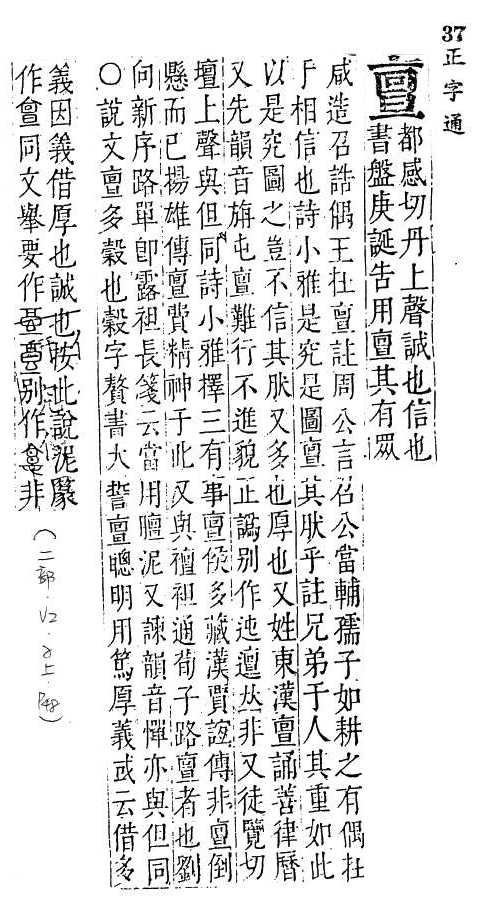 37 正字通
亶 都感切丹上聲誠也信也
書盤庚誕告用亶其有眾
咸造召誥偶王杜亶註周公言召公當輔孺子如耕之有偶杜
于相信也詩小雅是究是圖亶其肰乎註兄弟于人其重如此
以是究圖之豈不信其肰又多也厚也又姓東漢亶誦善律曆
又先韻音旃屯亶難行不進貌正譌别作迍邅𠀤非又徒覽切
壇上聲與但同詩小雅擇三有事亶矦多藏漢賈誼傳非亶倒
懸而已揚雄傳亶費精神于此又與襢袒通荀子路亶者也劉
向新序路單卽露袒長箋云當用膻泥又諫韻音憚亦與但同
○說文亶多穀也穀字贅書大誓亶聰明用篤厚義或云借多
義因義借厚也誠也按此說泥
作亶同文舉要作 别作 非
(二部.V2.子上.)